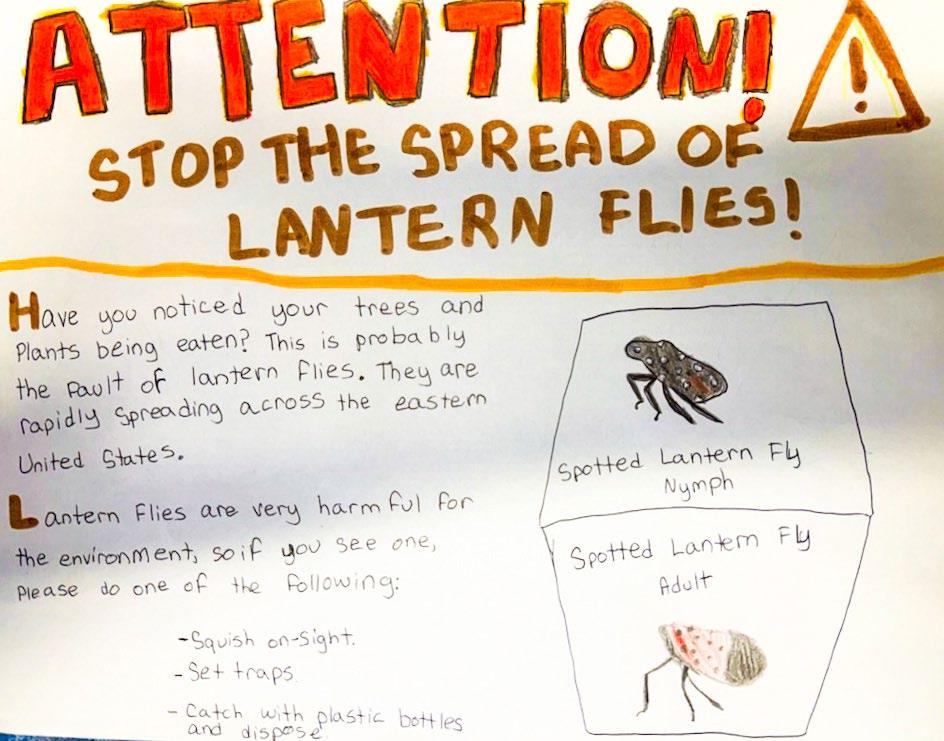 ATTENTION!
STOP THE SPREAD OF
LANTERN FLIES!
Have you noticed your trees and
Plants being eaten? This is probably
the fault of lantern flies. They are
rapidly Spreading across the eastern
United States.
Lantern Flies are very harmful for
the environment, so if you see one,
Please do one of the following:
-Squish on-sight.
-Set traps.
- Catch with plastic bottles
and dispose.
Spotted Lantern Fly
Nymph
Spotted Lantern Fly
Adult